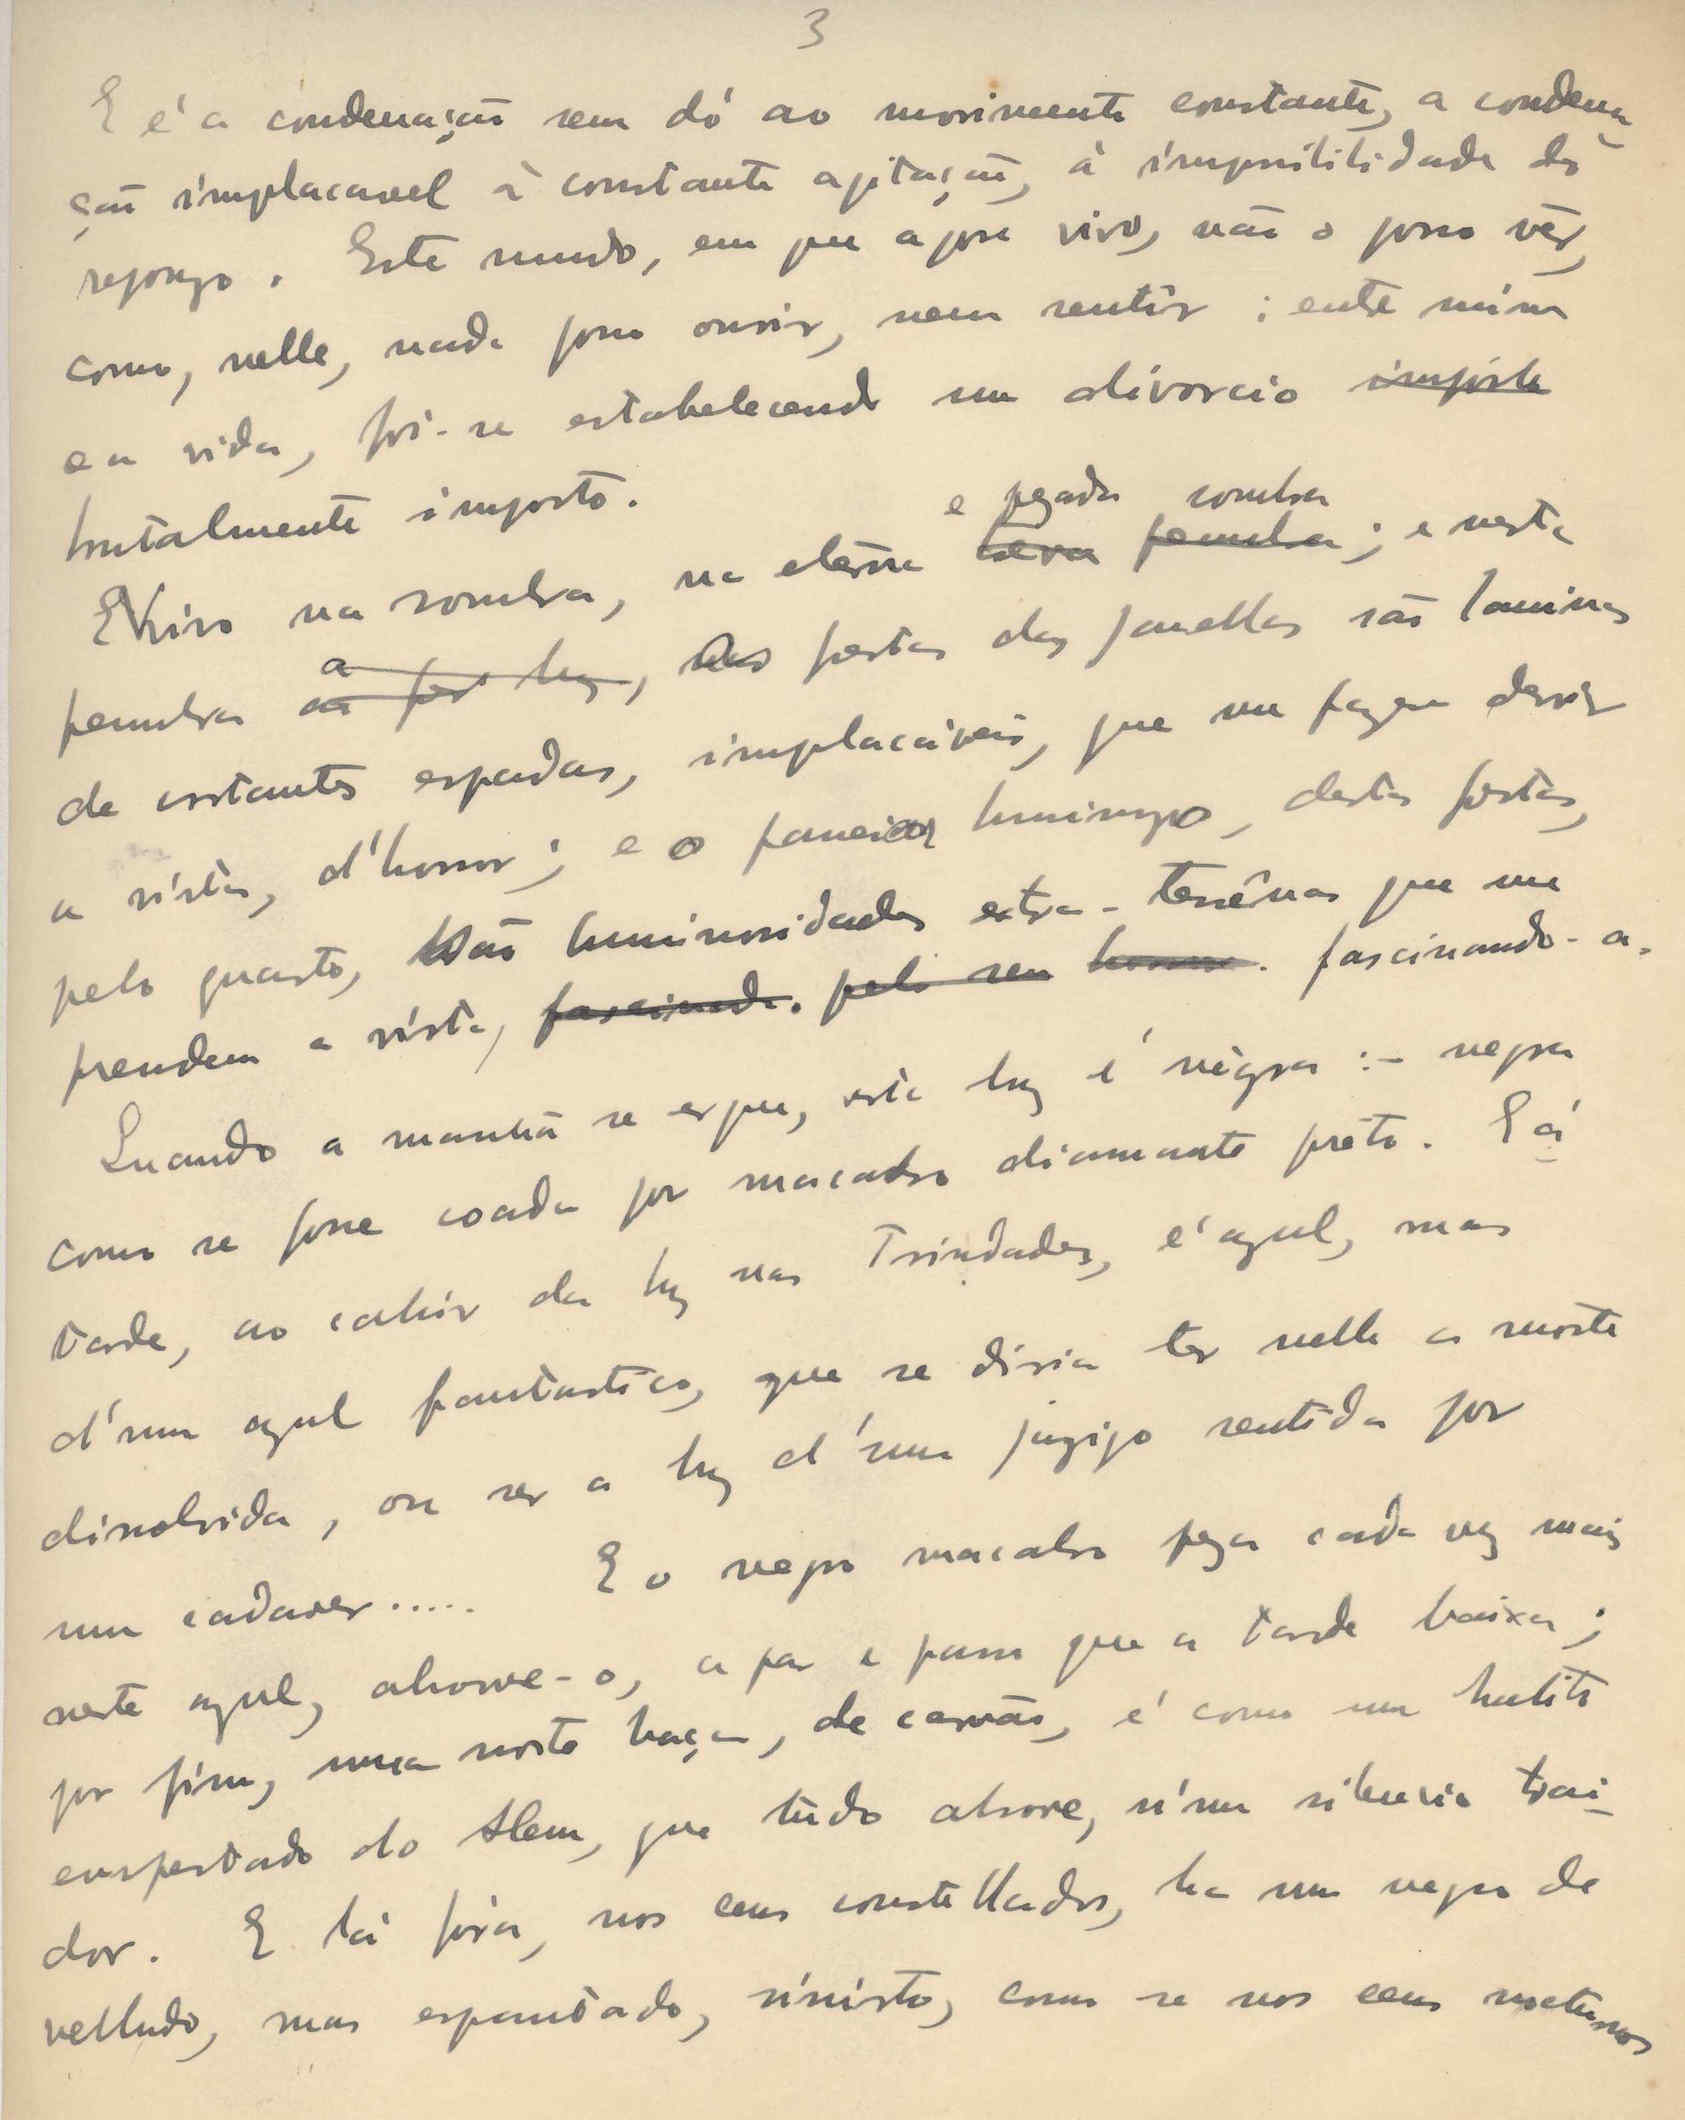 3
E é a condenação sem dó ao movimento constante, a condena-
ção implacavel à constante agitação, à impossibilidade do
repouzo. Este mundo, em que agora vivo, não o posso vêr,
como, nelle, nada posso ouvir, nem sentir: entre mim
e a vida, foi-se estabelecendo um divorcio
brutalmente imposto.
e pezada sombra
Vivo na sombra, na eterna treva penumbra; e nesta
penumbra a luz, as frestas das janellas são laminas
de cortantes espadas, implacáveis, que me fazem desviar
a vista, d'horror; e o luminozo, destas frestas,
pelo quarto, são luminosidades extra-terrênas que me
prendem a vista, fascinada. pelo seu horror. fascinando-a.
Quando a manhã se ergue, esta luz é négra:- negra
como se fosse coada por macabro diamante prêto. E á
tarde, ao cahir da luz nas Trindades, é azul, mas
d'um azul fantastico, que se diria ter nelle a morte
dissolvida, ou ser a luz d'um jazigo sentida por
um cadaver.....   E o negro macabro peza cada vez mais
neste azul, absorve-o, a par e passo que a tarde baixa;
por fim, numa noite baça, de carvão, é como um halito
empestado do Alem, que tudo absorve, n'um silencio trai-
dor. E lá fóra, nos ceus constellados, ha um negro de
velludo, mas espantado, sinistro, como se nos ceus nocturnos